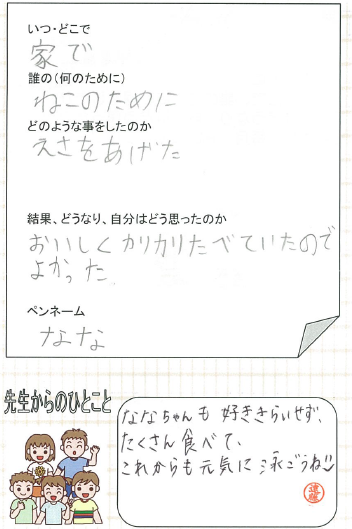 いつ・どこで
家で
誰の(何のために)
ねこのために
どのような事をしたのか
えさをあげた
結果、どうなり、自分はどう思ったのか
おいしくカリカリたべていたので
よかった.
ペンネーム
なな
先生からのひとこと
ななちゃんも好ききらいせず、
たくさん食べて、
これからも元気に泳ごうね!!